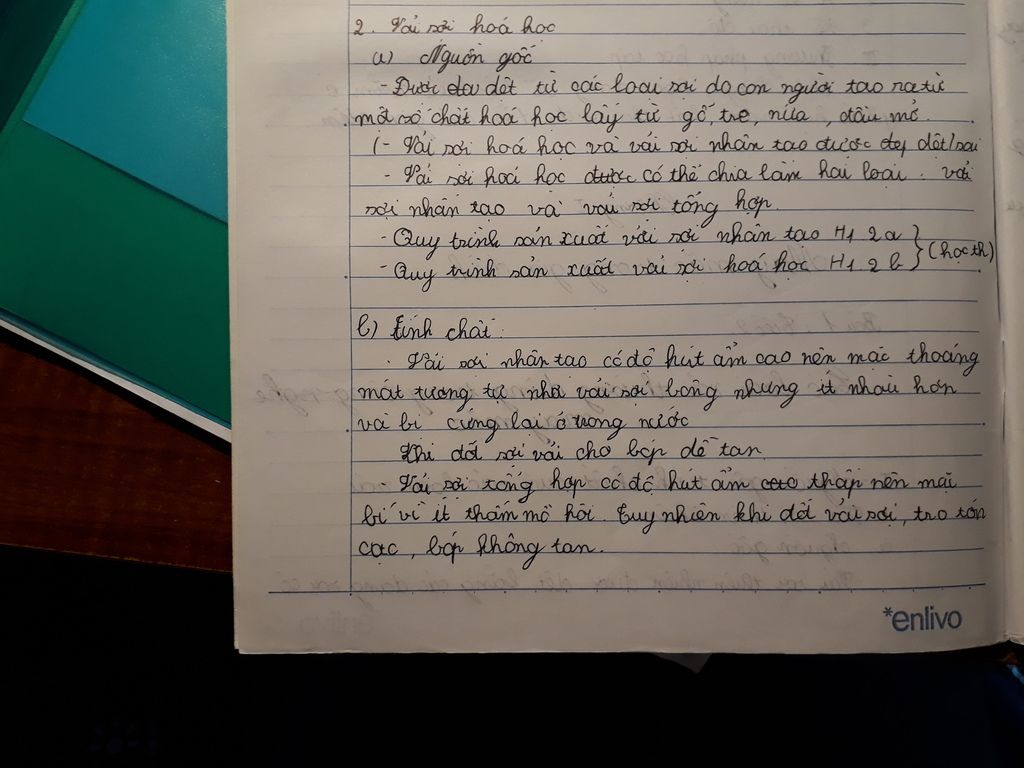 2. Vải sợi hoá học
a) Nguồn gốc
- Được dệt từ các loại sợi do con người tạo ra từ
một số chất hoá học lấy từ gỗ, tre, nứa, dầu mỏ.
(- Vải sợi hoá học và vải sợi nhân tạo được dệt/sợi
- Vải sợi hoá học được có thể chia làm hai loại. vải
sợi nhân tạo và vải sợi tổng hợp.
- Quy trình sản xuất vải sợi nhân tạo H1 2a } (học th)
- Quy trình sản xuất vải sợi hoá học H1. 2 b
b) tính chất:
. Vải sợi nhân tạo có độ hút ẩm cao nên mặc thoáng
mát tương tự như vải sợi bông nhưng ít nhàu hơn
và bị cứng lại ở trong nước
Khi đốt sợi vải cho bóp dễ tan
- Vải sợi tổng hợp có độ hút ẩm cao thấp nên mặc
bí vì ít thấm mồ hôi. Tuy nhiên khi đốt vải sợi, tro
cục, bóp không tan.
*enlivo